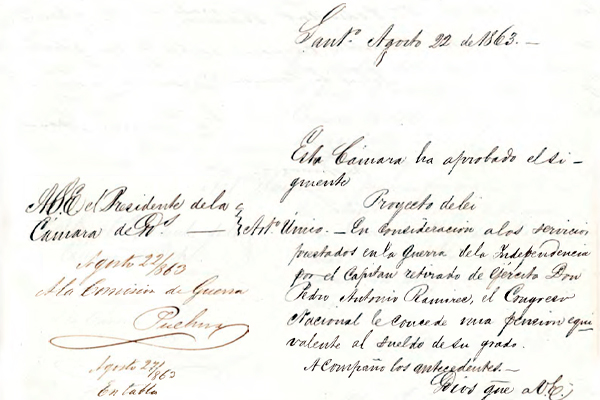 Sant.º Agosto 22 de 1863.—
Esta Cámara ha aprobado el si-
guiente
Proyecto de lei
Art.º Único.— En consideracion a los servicios
prestados en la Guerra de la Independencia
por el Capitan retirado de Ejército Don
Pedro Antonio Ramirez, el Congreso
Nacional le concede una pension equi-
valente al sueldo de su grado.
Acompaño los antecedentes.—
Dios gue a V.E.
A S.E. el Presidente de la
Cámara de D.s
Agosto 22/863
A la Comision de Guerra
Agosto 27/863
En tabla